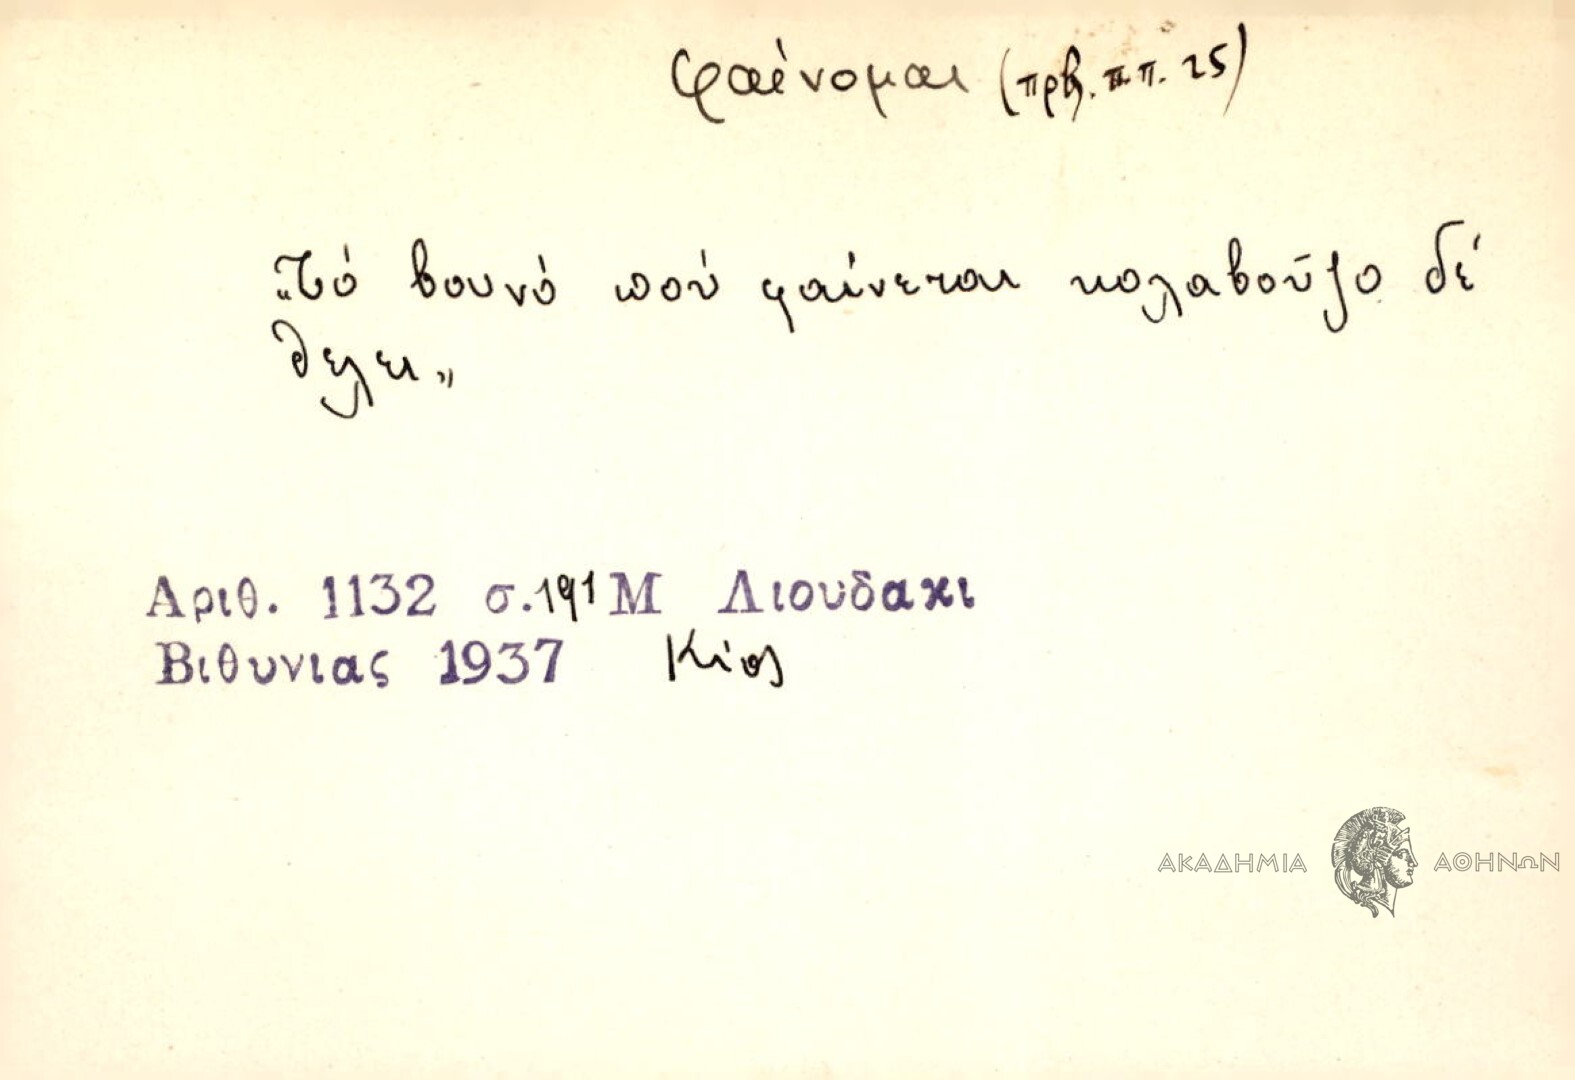 φαίνομαι (πρβ. π.π. 25)
„Τό βουνό πού φαίνεται κολαβοῦζο δέ
θελει„
Αριθ. 1132 σ.191 Μ Λιουδακι
Βιθυνιας 1937 Κίος
ΑΚΑΔΗΜΙΑ ΑΘΗΝΩΝ